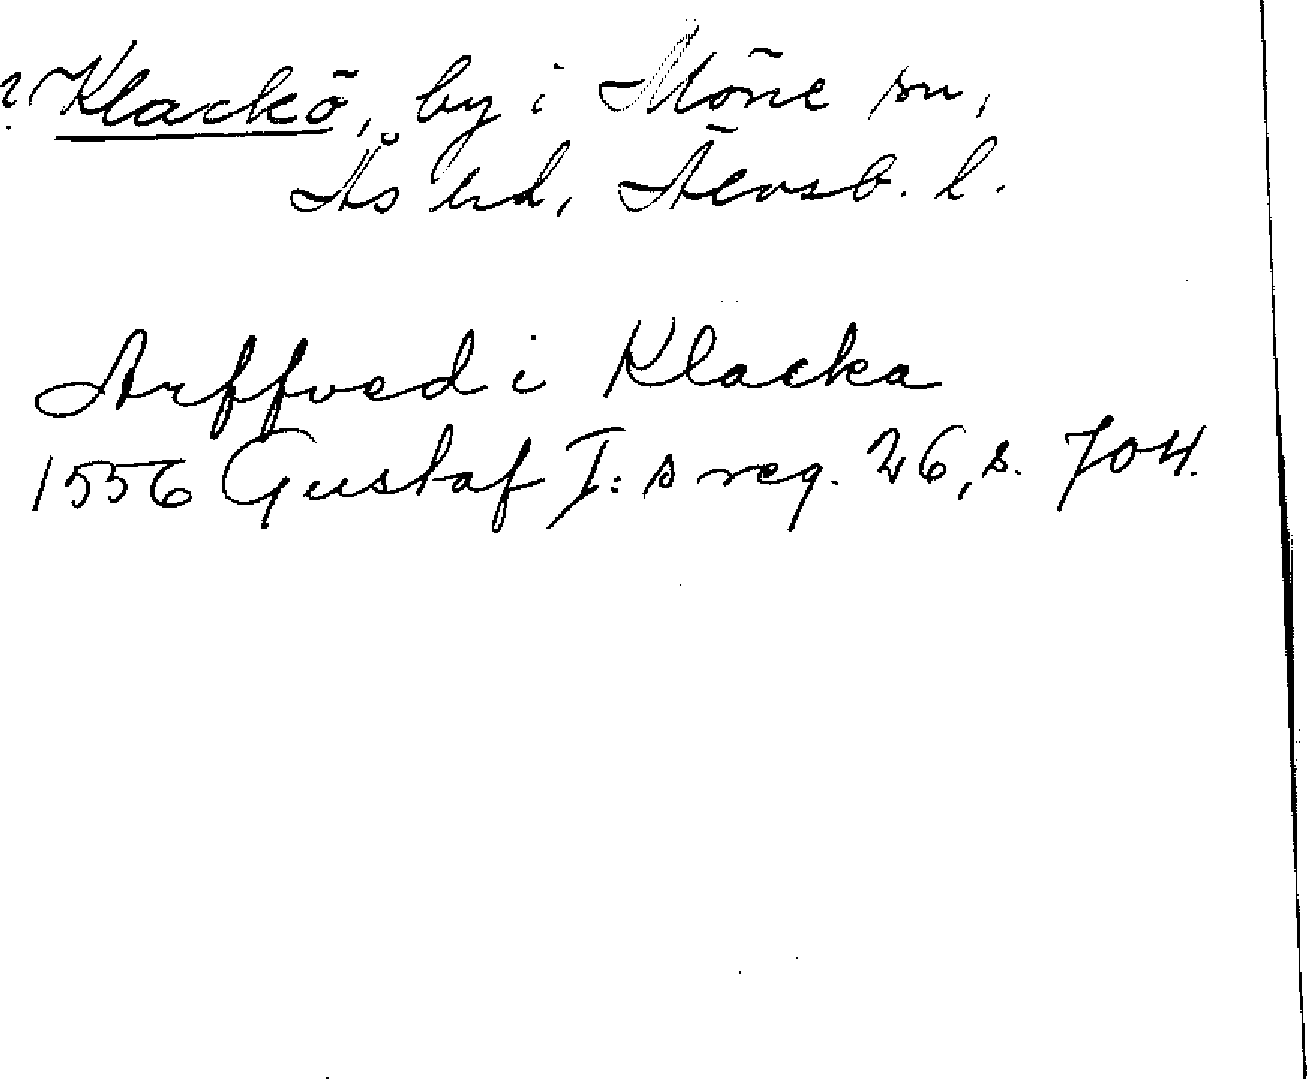 ? Klackö, by i Möne sn,
Ås hd, Älvsb. l.
Arffved i Klacka
1556 Gustaf I:s reg. 26, s. 704.